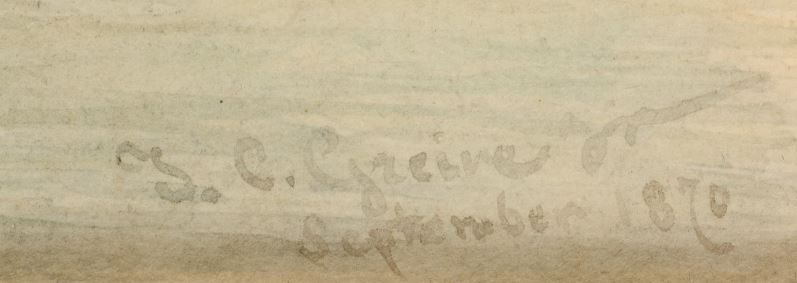 J. C. Greive Jr
September 1870